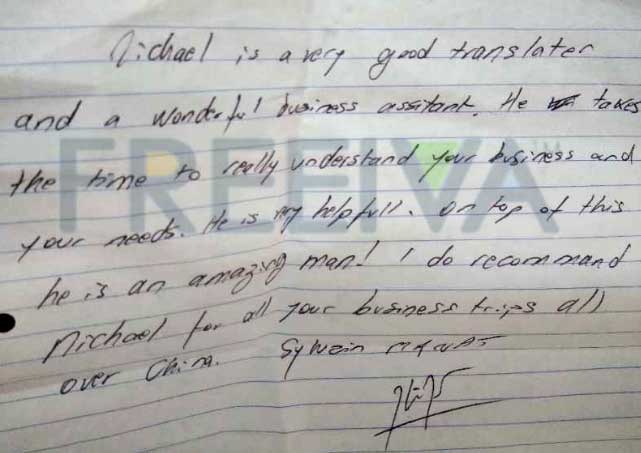 Michael is a very good translater
and a wonderful business assitant. He takes
the time to really understand your business and
your needs. He is very helpfull. On top of this
he is an amazing man! I do recommand
Michael for all your business trips all
over China. Sylvain
FREEIVA